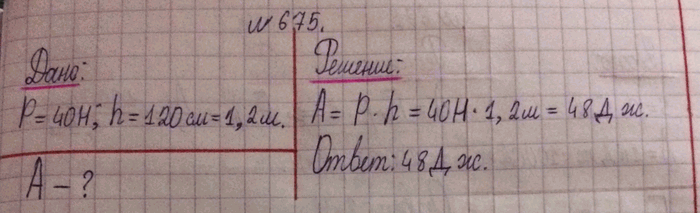 № 675.
Дано:
P = 40Н; h = 120 см = 1,2м.
А - ?
Решение:
А = P · h = 40Н · 1,2м = 48Дж.
Ответ: 48Дж.